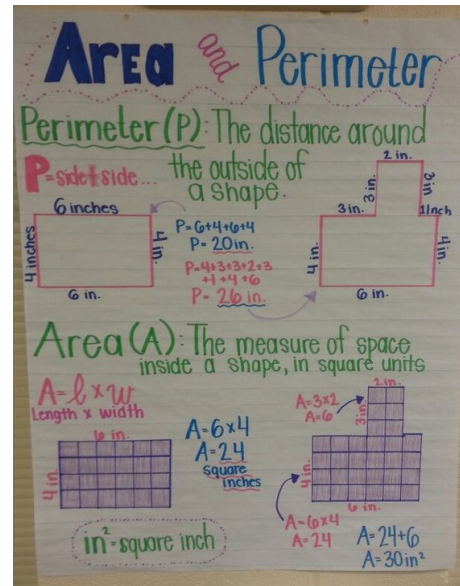 Area and Perimeter
Perimeter (P): The distance around
the outside of
a shape.
P=side+side...
6 inches
4 inches
4 in.
6 in.
P=6+4+6+4
P=20in.
P=4+3+3+2+3
+1+4+6
P=26 in.
2 in.
3 in.
3in
3in.
1Inch
4 in.
4in.
6 in.
Area (A): The measure of space
inside a shape, in square units
A=l x w
Length x width
6 in.
4 in.
A=6x4
A=24
square
inches
A=3x2
A=6
2in.
3in.
4 in.
6 in.
A=6x4
A=24
A=24+6
A=30in²
in²=square inch